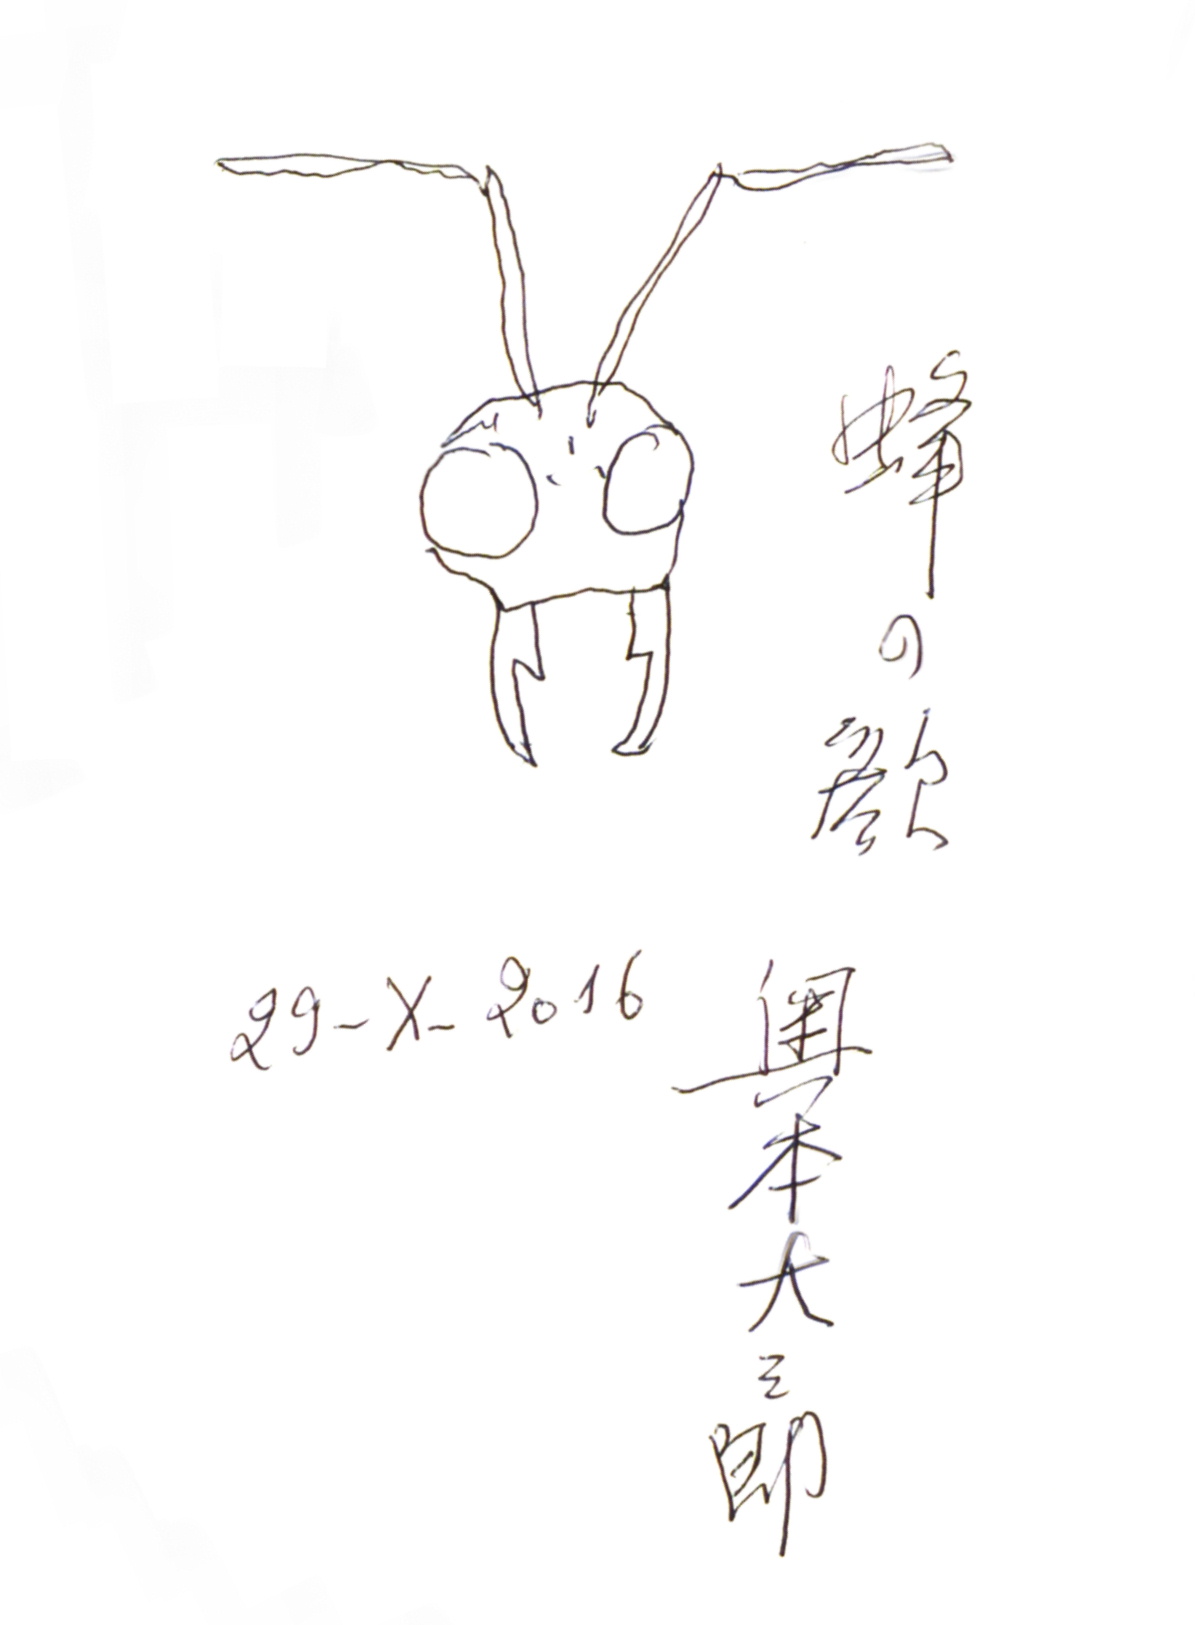 蜂の顔
奥本大三郎
29-X-2016